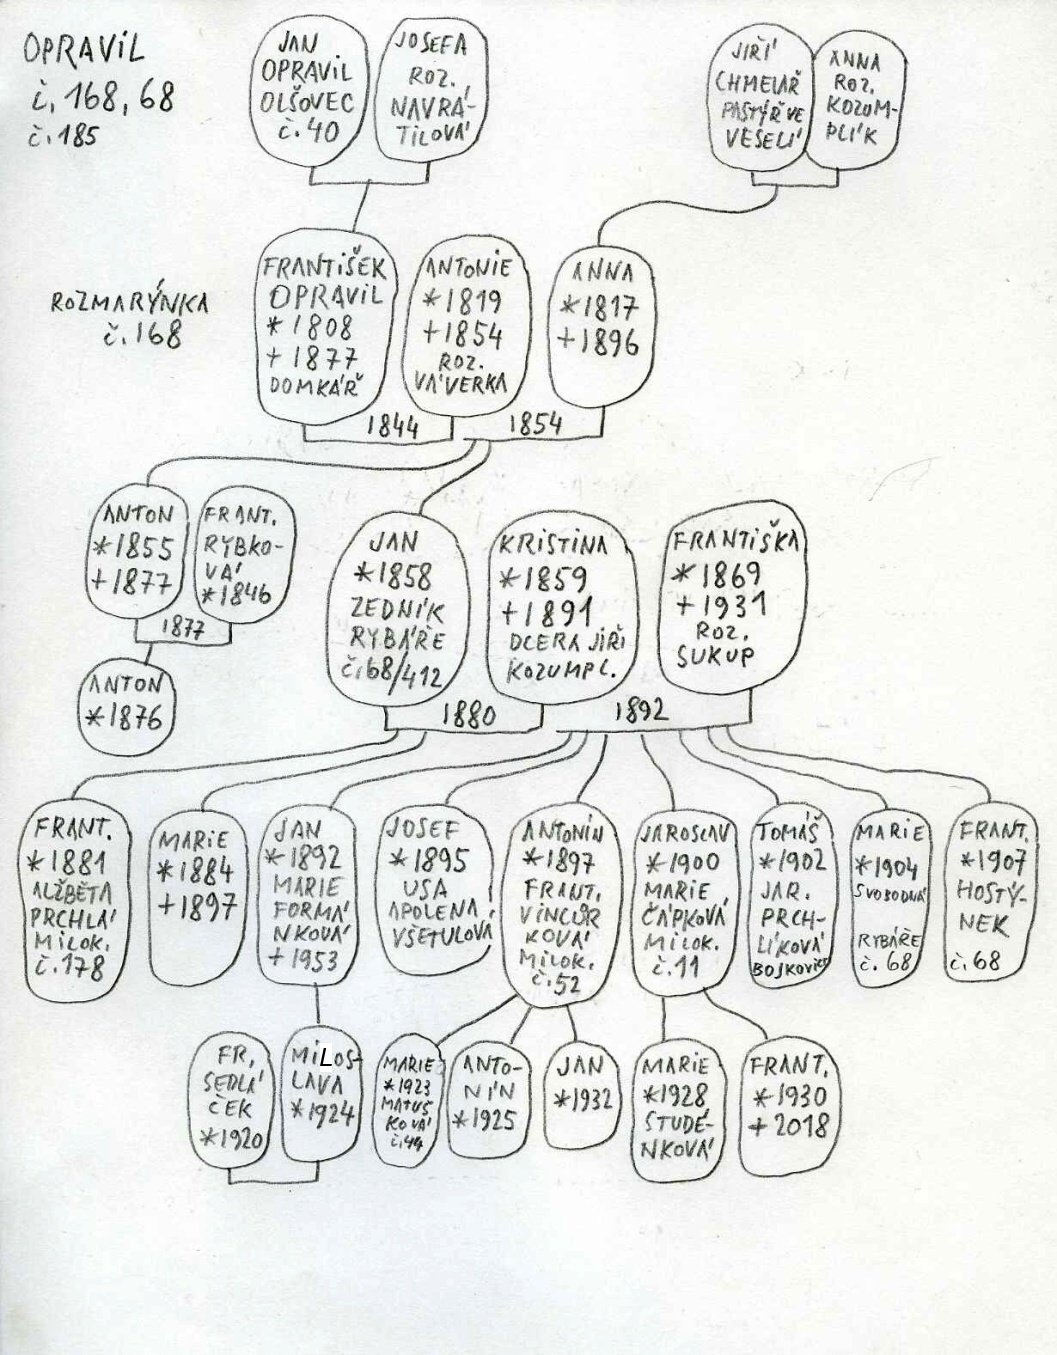 OPRAVIL
č. 168, 68
č. 185
JAN
OPRAVIL
OLŠOVEC
č. 40
JOSEFA
ROZ.
NAVRÁ-
TILOVÁ
JIŘÍ
CHMELAŘ
PASTÝŘ VE
VESELÍ
ANNA
ROZ.
KOZUM-
PLÍK
ROZMARÝNKA
č. 168
FRANTIŠEK
OPRAVIL
*1808
+1877
DOMKÁŘ
ANTONIE
*1819
+1854
ROZ.
VÁVERKA
ANNA
*1817
+1896
1844
1854
ANTON
*1855
+1877
FRANT.
RYBKO-
VÁ
*1846
1877
ANTON
*1876
JAN
*1858
ZEDNÍK
RYBÁŘE
č. 68/412
KRISTINA
*1859
+1891
DCERA JIŘÍ
KOZUMPL.
FRANTIŠKA
*1869
+1931
ROZ.
SUKUP
1880
1892
FRANT.
*1881
ALŽBĚTA
PRCHLÁ
MILOK.
č. 178
MARIE
*1884
+1897
JAN
*1892
MARIE
FORMÁ
NKOVÁ
+1953
JOSEF
*1895
USA
APOLENA
VŠETULOVÁ
ANTONÍN
*1897
FRANT.
VINCŮR
KOVÁ
MILOK.
č. 52
JAROSLAV
*1900
MARIE
ČÁPKOVÁ
MILOK.
č. 11
TOMÁŠ
*1902
JAR.
PRCH-
LÍKOVÁ
BOJKOVICE
MARIE
*1904
SVOBODNÁ
RYBÁŘE
č. 68
FRANT.
*1907
HOSTÝ-
NEK
č. 68
FR.
SEDLÁ
ČEK
*1920
MILOS-
LAVA
*1924
MARIE
*1923
MATUŠ
KOVÁ
č. 44
ANTO-
NÍN
*1925
JAN
*1932
MARIE
*1928
STUDÉ-
NKOVÁ
FRANT.
*1930
+2018